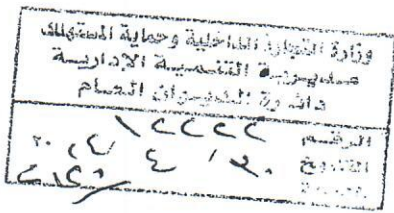 وزارة التجارة الداخلية وحماية المستهلك
مديرية التنمية الإدارية
دائرة الديوان العام
الرقم ١٢٢٢٢
التاريخ ٢٠ / ٤ /